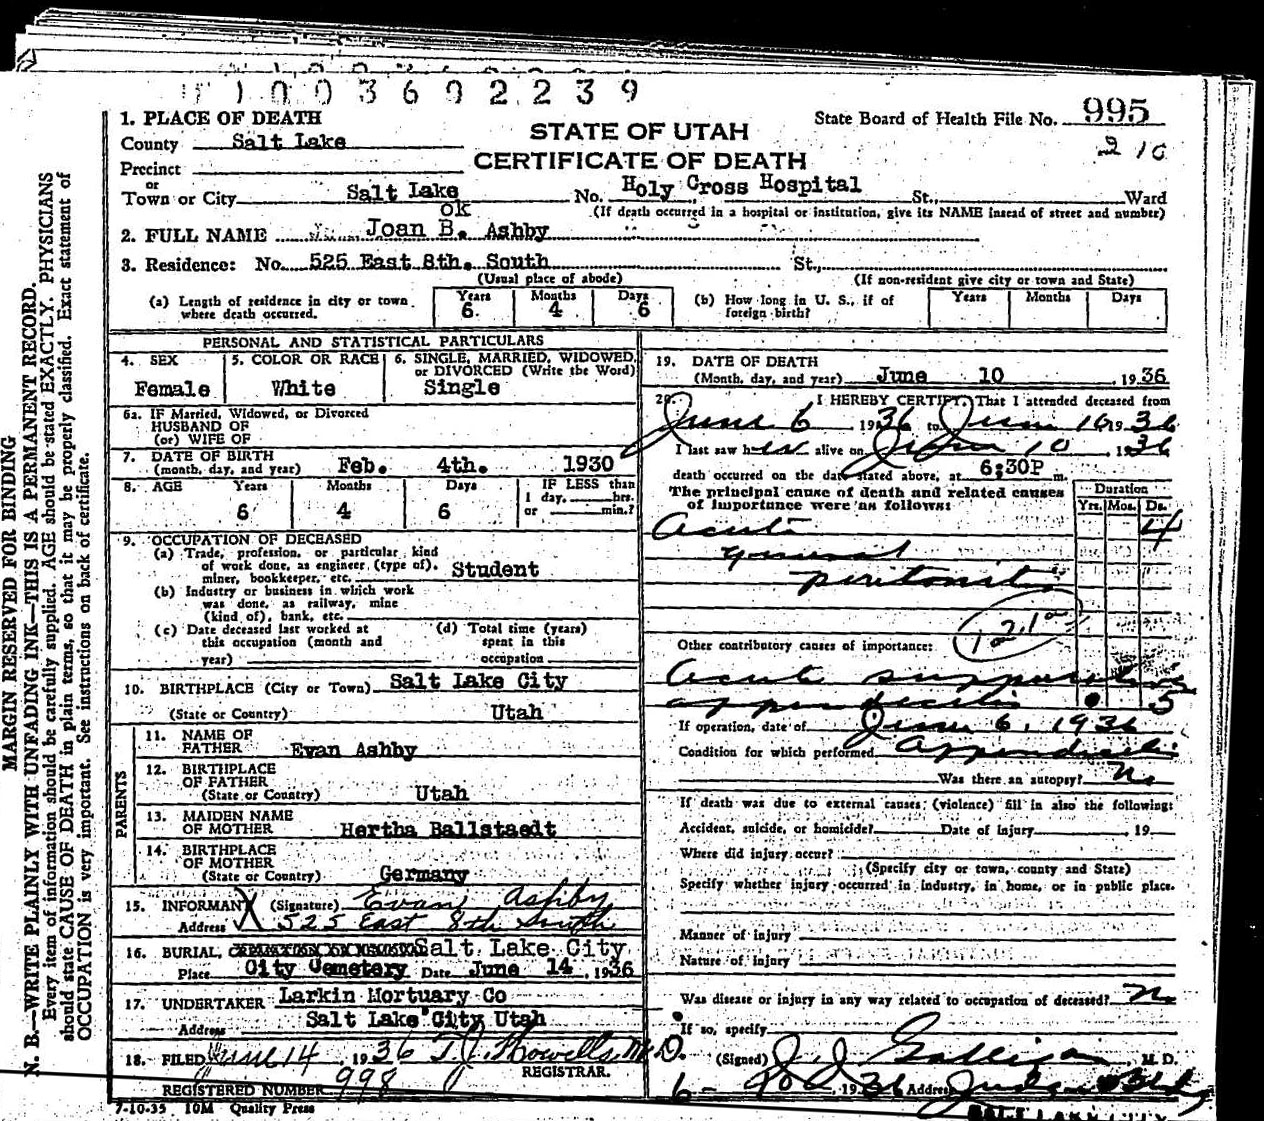 1003602239
1. PLACE OF DEATH
County Salt Lake
Precinct
or
Town or City Salt Lake No. Holy Cross Hospital St., Ward
(If death occurred in a hospital or institution, give its NAME instead of street and number)
STATE OF UTAH
CERTIFICATE OF DEATH
State Board of Health File No. 995
210
ok
2. FULL NAME Joan B. Ashby
3. Residence: No. 525 East 8th. South St.,
(Usual place of abode) (If non-resident give city or town and State)
(a) Length of residence in city or town where death occurred. Years 6 Months 4 Days 6
(b) How long in U. S., if of foreign birth? Years Months Days
PERSONAL AND STATISTICAL PARTICULARS
4. SEX Female
5. COLOR OR RACE White
6. SINGLE, MARRIED, WIDOWED, or DIVORCED (Write the Word) Single
6a. IF Married, Widowed, or Divorced
HUSBAND OF
(or) WIFE OF
7. DATE OF BIRTH
(month, day, and year) Feb. 4th. 1930
8. AGE Years 6 Months 4 Days 6 IF LESS than 1 day, hrs. or min.?
9. OCCUPATION OF DECEASED
(a) Trade, profession, or particular kind
of work done, as engineer (type of),
miner, bookkeeper, etc. Student
(b) Industry or business in which work
was done, as railway, mine
(kind of), bank, etc.
(c) Date deceased last worked at
this occupation (month and
year)
(d) Total time (years)
spent in this
occupation
10. BIRTHPLACE (City or Town) Salt Lake City
(State or Country) Utah
PARENTS
11. NAME OF
FATHER Evan Ashby
12. BIRTHPLACE
OF FATHER
(State or Country) Utah
13. MAIDEN NAME
OF MOTHER Hertha Ballstaedt
14. BIRTHPLACE
OF MOTHER
(State or Country) Germany
15. INFORMANT X (Signature) Evan Ashby
Address 525 East 8th South
16. BURIAL, Salt Lake City
Place City Cemetery Date June 14, 1936
17. UNDERTAKER Larkin Mortuary Co
Address Salt Lake City Utah
18. FILED June 14, 1936 T. J. Howells, M.D.
REGISTRAR.
REGISTERED NUMBER 998
7-10-35 10M Quality Press
19. DATE OF DEATH
(Month, day, and year) June 10, 1936
20. I HEREBY CERTIFY, That I attended deceased from
June 6 1936 to June 10 1936
I last saw her alive on June 10, 1936
death occurred on the date stated above, at 6:30P m.
The principal cause of death and related causes
of importance were as follows:
Duration
Yrs. Mos. Ds.
Acute 4
general
peritonitis
121a
Other contributory causes of importance:
Acute suppurative
appendicitis 5
If operation, date of June 6, 1936
Condition for which performed Appendicitis
Was there an autopsy? No
If death was due to external causes (violence) fill in also the following:
Accident, suicide, or homicide? Date of injury , 19
Where did injury occur?
(Specify city or town, county and State)
Specify whether injury occurred in industry, in home, or in public place.
Manner of injury
Nature of injury
Was disease or injury in any way related to occupation of deceased? No
If so, specify
(Signed) J. J. Galligan M. D.
1936 Address Judge Bldg
SALT LAKE CITY
MARGIN RESERVED FOR BINDING
N. B.—WRITE PLAINLY WITH UNFADING INK—THIS IS A PERMANENT RECORD.
Every item of information should be carefully supplied. AGE should be stated EXACTLY. PHYSICIANS
should state CAUSE OF DEATH in plain terms, so that it may be properly classified. Exact statement of
OCCUPATION is very important. See instructions on back of certificate.